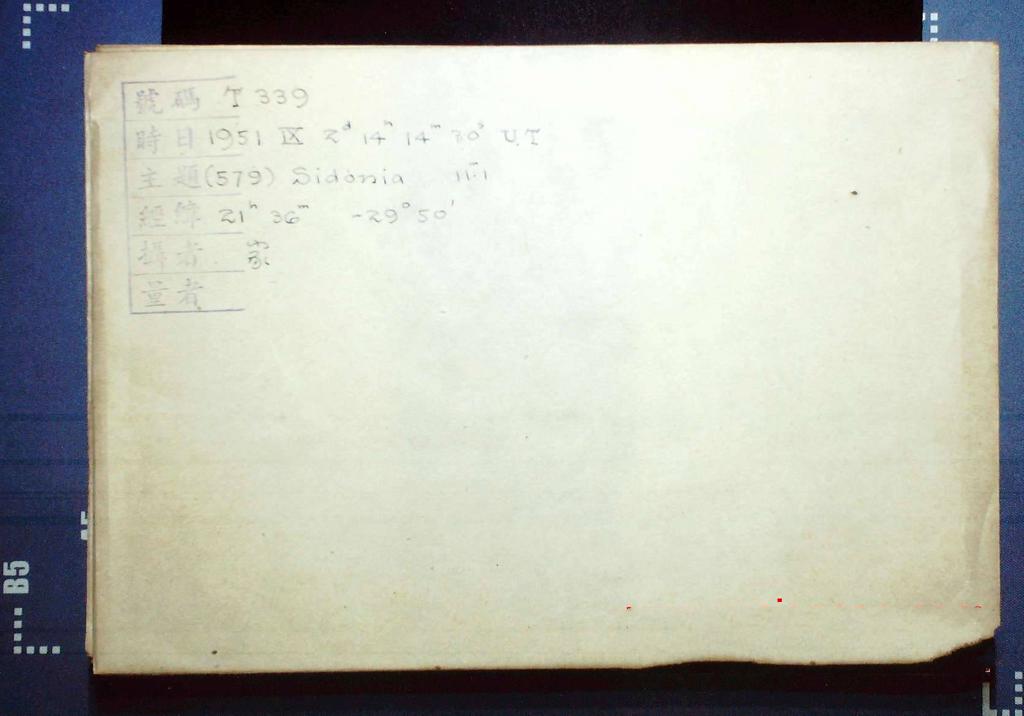 號碼 T 339
時日 1951 IX 2ᵈ 14ʰ 14ᵐ 30ˢ U.T
主題 (579) Sidonia 11ᵐ.1
經緯 21ʰ 36ᵐ -29° 50'
攝者
量者
B5